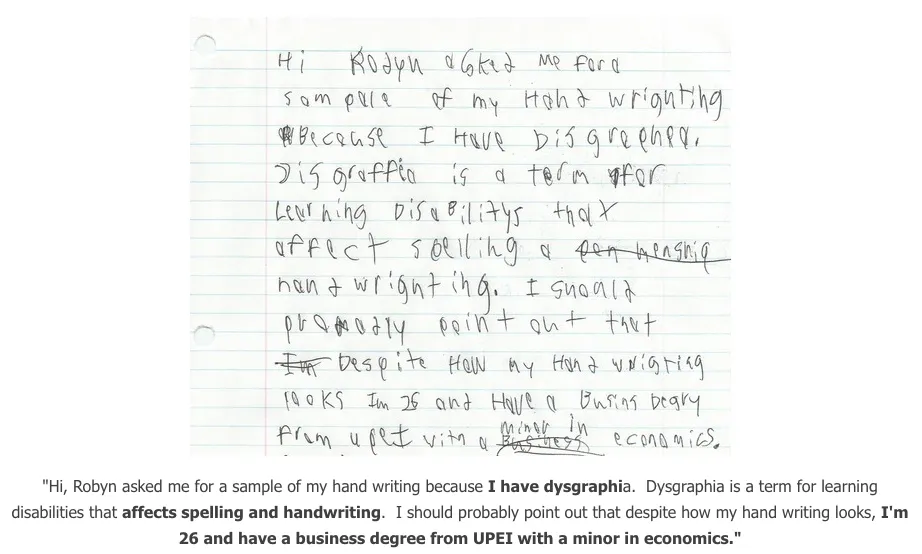 Hi Robyn asked me for a
sampule of my Hand wrighting
Because I Have Disgraphea.
Disgraffia is a term for
Learning Disabilitys that
affect spelling a pen menship
hand wrighting. I should
probably point out that
Im Despite How my Hand wrigting
looks Im 26 and Have a Busins Degry
from upeI with a minor in Business economics.
"Hi, Robyn asked me for a sample of my hand writing because I have dysgraphia. Dysgraphia is a term for learning
disabilities that affects spelling and handwriting. I should probably point out that despite how my hand writing looks, I'm
26 and have a business degree from UPEI with a minor in economics."